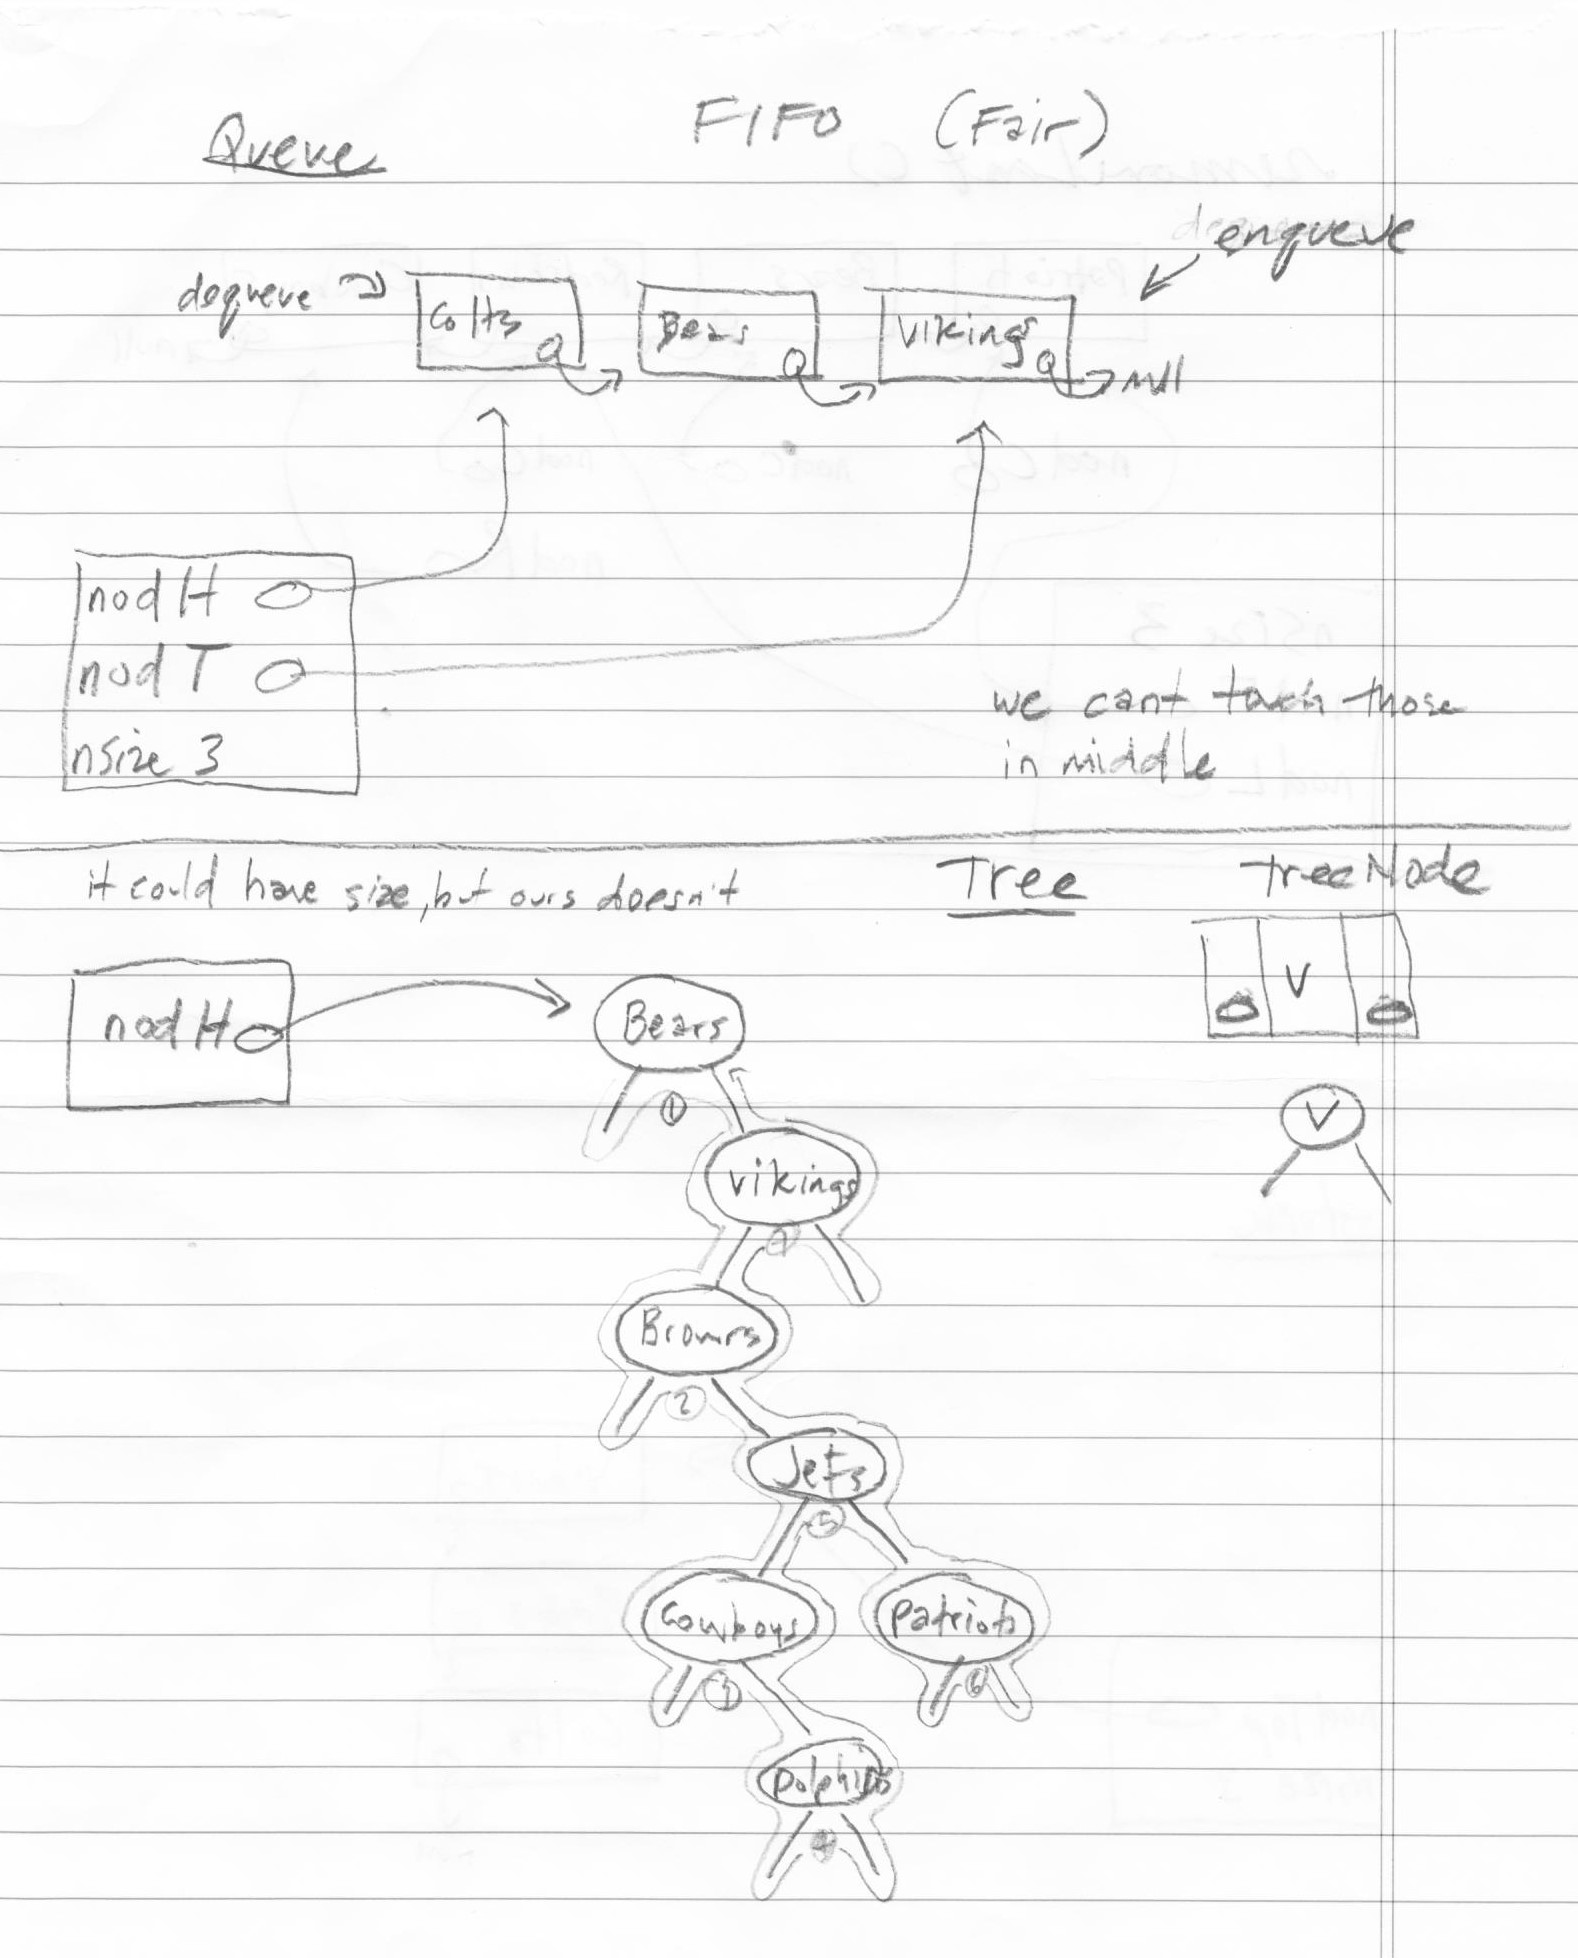 Queue
FIFO (Fair)
enqueue
dequeue
Colts
Bears
Vikings
null
nod H
nod T
nSize 3
we cant touch those
in middle
it could have size, but ours doesn't
Tree
treeNode
nod H
Bears
V
1
V
Vikings
7
Browns
2
Jets
5
Cowboys
Patriots
3
6
Dolphins
4